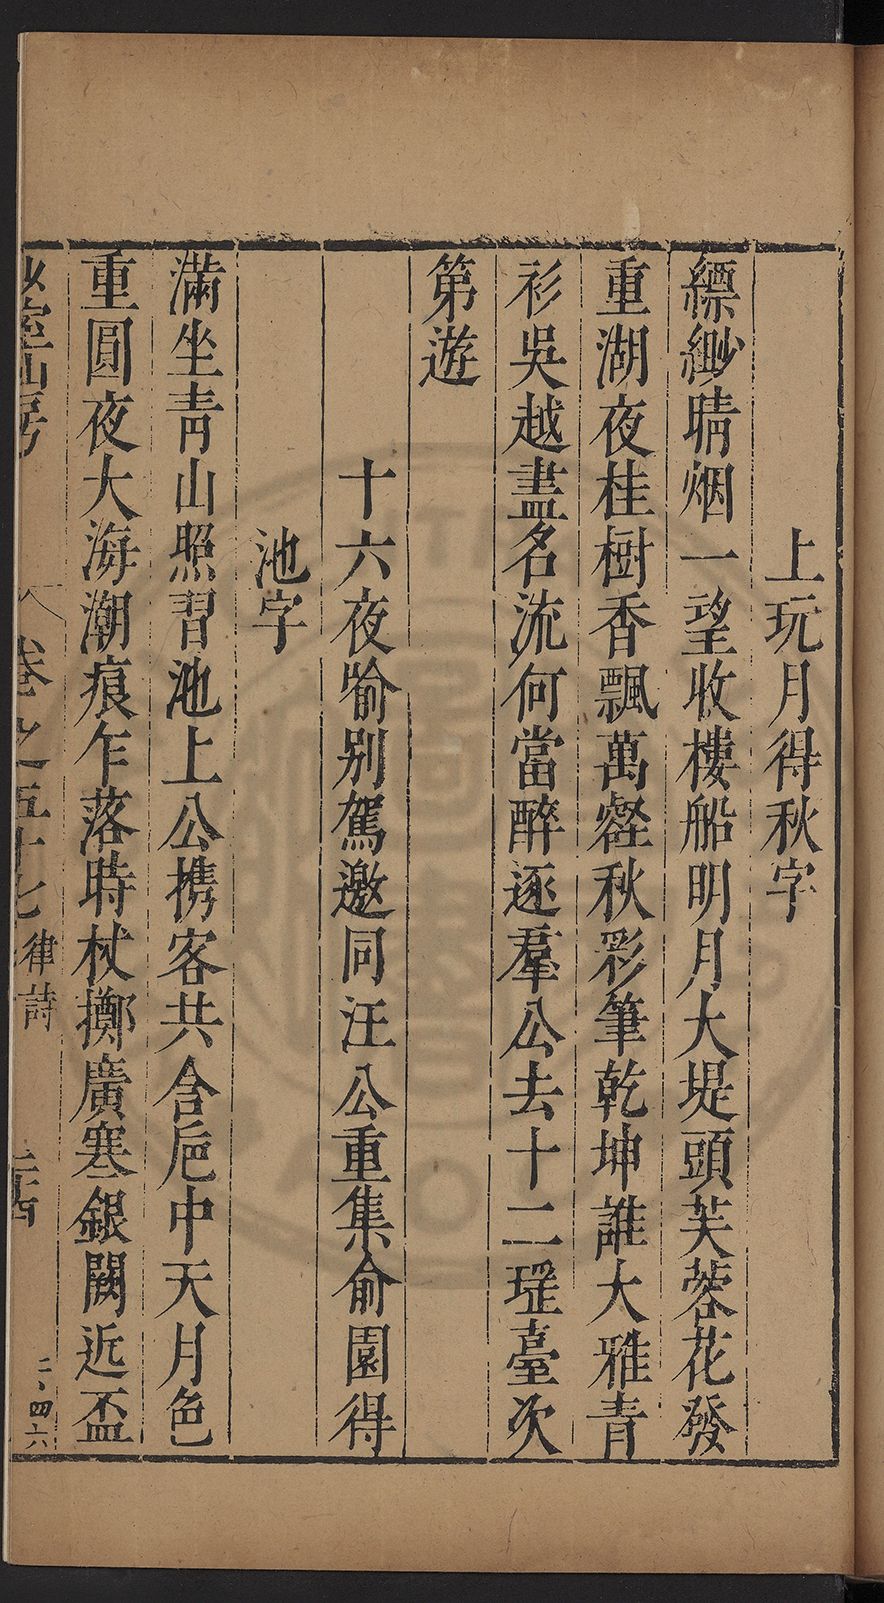 上玩月得秋字
縹緲晴烟一望收樓船明月大堤頭芙蓉花發
重湖夜桂樹香飄萬壑秋彩筆乾坤誰大雅青
衫吳越盡名流何當醉逐羣公去十二瑶臺次
第遊
十六夜喻别駕邀同汪公重集俞園得
池字
滿坐青山照習池上公携客共含巵中天月色
重圓夜大海潮痕乍落時杖擲廣寒銀闕近盃
少室山房
卷之五十七
律詩
二、四六